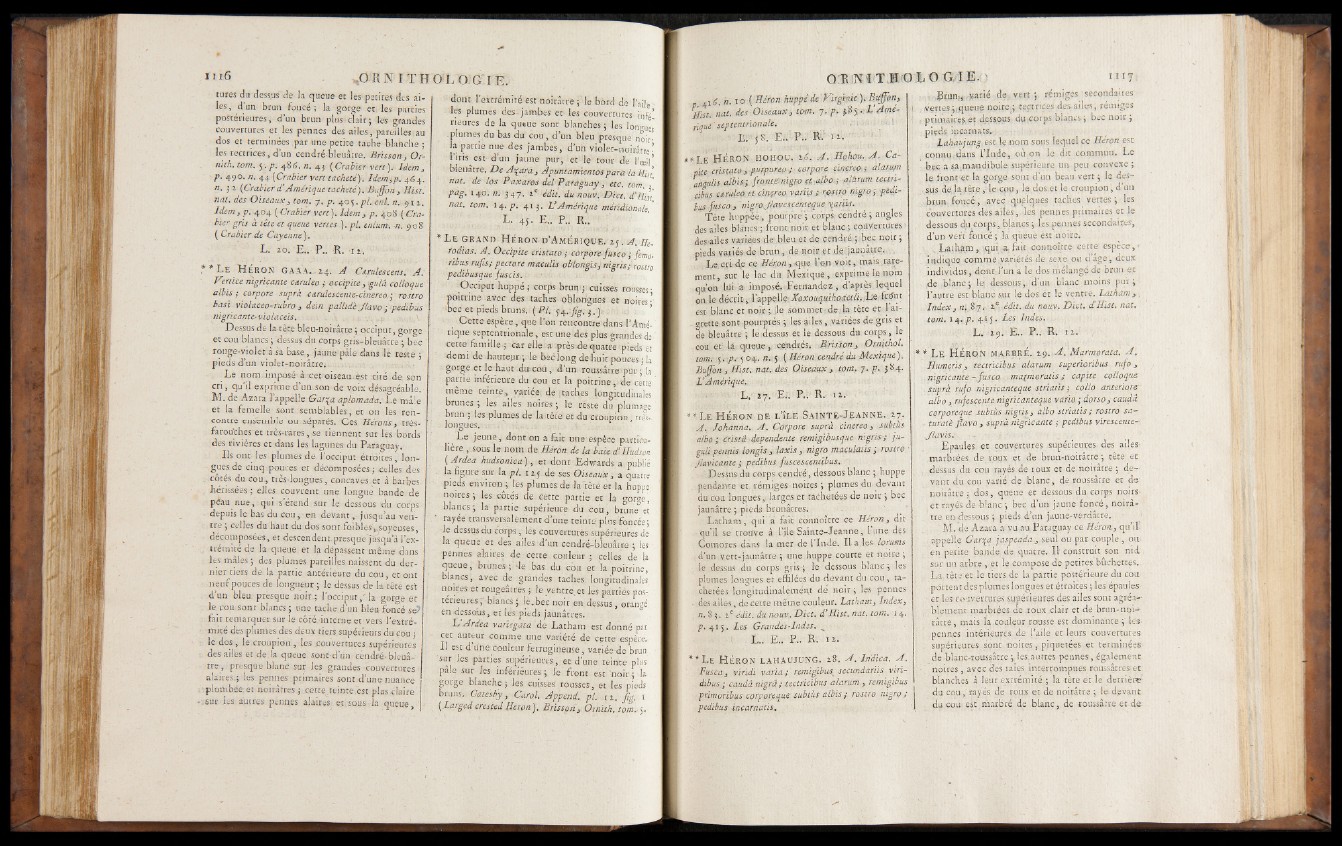 1116 ORNITHOLOGIE.
tures du dessus de la queue et les petites des ai-
les, d'un brun foncé ; la gorge et les parties
postérieures, d'un brun plus clair ; les grandes
couvertures et les pennes des ailes, pareilles au
dos et terminées par une petite tache blanche ;
les rectrices, d'un cendré-bleuâtre. Brisson, Or-
nith. tom. 5. p. 486. n. 43 (Crabier vert). Idem,
p. 490. n. 44 (Crabier vert tacheté). Idem, p. 464.
n. 32 (Crabier d'Amérique tacheté). Buffon, Hist.
nat. des Oiseaux, tom. 7. p. 405. pl. enl. n. 912.
Idem, p. 404 (Crabier vert). Idem, p. 408 (Cra-
bier gris à tête et queue vertes). pl. enlum. n. 908
(Crabier de Cayenne).
L. 20. E.. P.. R. 12.
** LE HÉRON GAZA. 24. A Cærulescens. A.
Vertice nigricante cæruleo ; occipite, gulâ colloque
albis ; corpore suprà cærulescente-cinereo ; rostro
basi violaceo-rubro, dein pallidè flavo ; pedibus
nigricante-violaceis.
Dessus de la tête bleu-noirâtre ; occiput, gorge
et cou blancs ; dessus du corps gris-bleuâtre ; bec
rouge-violet à sa base, jaune pâle dans le reste ;
pieds d'un violet-noirâtre.
Le nom imposé à cet oiseau est tiré de son
cri, qu'il exprime d'un son de voix désagréable.
M. de Azara l'appelle Garza aplomada. Le mâle
et la femelle sont semblables, et on les ren-
contre ensemble ou séparés. Ces Hérons, très-
farouches et très-rares, se tiennent sur les bords
des rivières et dans les lagunes du Paraguay.
Ils ont les plumes de l'occiput étroites, lon-
gues de cinq pouces et décomposées ; celles des
côtés du cou, très-longues, concaves et à barbes
hérissées ; elles couvrent une longue bande de
peau nue, qui s'étend sur le dessous du corps
depuis le bas du cou, en devant, jusqu'au ven-
tre ; celles du haut du dos sont foibles, soyeuses,
décomposées, et descendent presque jusqu'à l'ex-
trémité de la queue et la dépassent même dans
les mâles ; des plumes pareilles naissent du der-
nier tiers de la partie antérieure du cou, et ont
neuf pouces de longueur ; le dessus de la tête est
d'un bleu presque noir ; l'occiput, la gorge et
le cou sont blancs ; une tache d'un bleu foncé se
fait remarquer sur le côté interne et vers l'extré-
mité des plumes des deux tiers supérieurs du cou ;
le dos, le croupion, les couvertures supérieures
des ailes et de la queue sont d'un cendré-bleuâ-
tre, presque blanc sur les grandes couvertures
alaires ; les pennes primaires sont d'une nuance
plombée et noirâtres ; cette teinte est plus claire
sur les autres pennes alaires et sous la queue,
dont l'extrémité est noirâtre ; le bord de l'aile,
les plumes des jambes et les couvertures infé-
rieures de la queue sont blanches ; les longues
plumes du bas du cou, d'un bleu presque noir ;
la partie nue des jambes, d'un violet-noirâtre ;
l'iris est d'un jaune pur, et le tour de l'œil,
bleuâtre. De Azara, Apuntamientos para la Hist.
nat. de los Paxaros del Paraguay, etc. tom. 3.
pag. 140. n. 347. 2e édit. du nouv. Dict. d'Hist.
nat. tom. 14. p. 413. L'Amérique méridionale.
L. 45. E.. P.. R..
* LE GRAND HÉRON D'AMÉRIQUE. 25. A. He-
rodias. A. Occipite cristato ; corpore fusco ; femo-
ribus rufis ; pectore maculis oblongis, nigris ; rostro
pedibusque fuscis.
Occiput huppé ; corps brun ; cuisses rousses ;
poitrine avec des taches oblongues et noires ;
bec et pieds bruns. (Pl. 54. fig. 3.)
Cette espèce, que l'on rencontre dans l'Amé-
rique septentrionale, est une des plus grandes de
cette famille ; car elle a près de quatre pieds et
demi de hauteur ; le bec long de huit pouces ; la
gorge et le haut du cou, d'un roussâtre pur ; la
partie inférieure du cou et la poitrine, de cette
même teinte, variée de taches longitudinales
brunes ; les ailes noires ; le reste du plumage
brun ; les plumes de la tête et du croupion, très-
longues.
Le jeune, dont on a fait une espèce particu-
lière, sous le nom de Héron de la baie d'Hudson
(Ardea hudsonica), et dont Edwards a publié
la figure sur la pl. 125 de ses Oiseaux, a quatre
pieds environ ; les plumes de la tête et la huppe
noires ; les côtés de cette partie et la gorge,
blancs ; la partie supérieure du cou, brune et
rayée transversalement d'une teinte plus foncée ;
le dessus du corps, les couvertures supérieures de
la queue et des ailes d'un cendré-bleuâtre ; les
pennes alaires de cette couleur ; celles de la
queue, brunes ; le bas du cou et la poitrine,
blancs, avec de grandes taches longitudinales
noires et rougeâtres ; le ventre et les parties pos-
térieures, blancs ; le bec noir en dessus, orangé
en dessous, et les pieds jaunâtres.
L'Ardea variegata de Latham est donné par
cet auteur comme une variété de cette espèce.
Il est d'une couleur ferrugineuse, variée de brun
sur les parties supérieures, et d'une teinte plus
pâle sur les inférieures ; le front est noir ; la
gorge blanche ; les cuisses rousses, et les pieds
bruns. Catesby, Carol. Append. pl. 12. fig. 1
(Larged crested Heron). Brisson, Ornith. tom. 5.
ORNITHOLOGIE. 1117
p. 416. n. 10 (Héron huppé de Virginie). Buffon,
Hist. nat. des Oiseaux, tom. 7. p. 385. L'Amé-
rique septentrionale.
L. 58. E.. P.. R. 12.
** LE HÉRON HOHOU. 26. A. Hohou. A. Ca-
pite cristato, purpureo ; corpore cinereo ; alarum
angulis albis ; fronte nigro et albo ; alarum tectri-
cibus cæruleo et cinereo variis ; rostro nigro ; pedi-
bus fusco, nigro flavescenteque variis.
Tête huppée, pourpre ; corps cendré ; angles
des ailes blancs ; front noir et blanc ; couvertures
des ailes variées de bleu et de cendré ; bec noir ;
pieds variés de brun, de noir et de jaunâtre.
Le cri de ce Héron, que l'on voit, mais rare-
ment, sur le lac du Mexique, exprime le nom
qu'on lui a imposé. Fernandez, d'après lequel
on le décrit, l'appelle Xoxouquihoactli. Le front
est blanc et noir ; le sommet de la tête et l'ai-
grette sont pourprés ; les ailes, variées de gris et
de bleuâtre ; le dessus et le dessous du corps, le
cou et la queue, cendrés. Brisson, Ornithol.
tom. 5. p. 404. n. 5 (Héron cendré du Mexique).
Buffon, Hist. nat. des Oiseaux, tom. 7. p. 384.
L'Amérique.
L. 27. E.. P.. R. 12.
** LE HÉRON DE L'ÎLE SAINTE-JEANNE. 27.
A. Johannæ. A. Corpore suprà cinereo, subtùs
albo ; cristâ dependente remigibusque nigris ; ju-
guli pennis longis, laxis, nigro maculatis ; rostro
flavicante ; pedibus fuscescentibus.
Dessus du corps cendré, dessous blanc ; huppe
pendante et rémiges noires ; plumes du devant
du cou longues, larges et tachetées de noir ; bec
jaunâtre ; pieds brunâtres.
Latham, qui a fait connoître ce Héron, dit
qu'il se trouve à l'île Sainte-Jeanne, l'une des
Comores dans la mer de l'Inde. Il a les lorums
d'un vert-jaunâtre ; une huppe courte et noire ;
le dessus du corps gris ; le dessous blanc ; les
plumes longues et effilées du devant du cou, ta-
chetées longitudinalement de noir ; les pennes
des ailes, de cette même couleur. Latham, Index,
n. 83. 2e édit. du nouv. Dict. d'Hist. nat. tom. 14.
p. 415. Les Grandes-Indes.
L.. E.. P.. R. 12.
** LE HÉRON LAHAUJUNG. 28. A. Indica. A.
Fusca, viridi varia ; remigibus secundariis viri-
dibus ; caudâ nigrâ ; tectricibus alarum, remigibus
primoribus corporeque subtùs albis ; rostro nigro ;
pedibus incarnatis.
Brun, varié de vert ; rémiges secondaires
vertes ; queue noire ; tectrices des ailes, rémiges
primaires et dessous du corps blancs ; bec noir ;
pieds incarnats.
Lahaujung est le nom sous lequel ce Héron est
connu dans l'Inde, où on le dit commun. Le
bec a sa mandibule supérieure un peu convexe ;
le front et la gorge sont d'un beau vert ; le des-
sus de la tête, le cou, le dos et le croupion, d'un
brun foncé, avec quelques taches vertes ; les
couvertures des ailes, les pennes primaires et le
dessous du corps, blancs ; les pennes secondaires,
d'un vert foncé ; la queue est noire.
Latham, qui a fait connoître cette espèce,
indique comme variétés de sexe ou d'âge, deux
individus, dont l'un a le dos mélangé de brun et
de blanc ; le dessous, d'un blanc moins pur ;
l'autre est blanc sur le dos et le ventre. Latham,
Index, n. 87. 2e édit. du nouv. Dict. d'Hist. nat.
tom. 14. p. 415. Les Indes.
L. 29. E.. P.. R. 12.
** LE HÉRON MARBRÉ. 29. A. Marmorata. A.
Humeris, tectricibus alarum superioribus rufo,
nigricante-fusco marmoratis ; capite colloque
suprà rufo nigricanteque striatis ; collo anteriore
albo, rufescente nigricanteque vario ; dorso, caudâ
corporeque subtùs nigris, albo striatis ; rostro sa-
turatè flavo, suprà nigricante ; pedibus virescente-
flavis.
Épaules et couvertures supérieures des ailes
marbrées de roux et de brun-noirâtre ; tête et
dessus du cou rayés de roux et de noirâtre ; de-
vant du cou varié de blanc, de roussâtre et de
noirâtre ; dos, queue et dessous du corps noirs
et rayés de blanc ; bec d'un jaune foncé, noirâ-
tre en dessous ; pieds d'un jaune-verdâtre.
M. de Azara a vu au Paraguay ce Héron, qu'il
appelle Garza jaspeada, seul ou par couple, ou
en petite bande de quatre. Il construit son nid
sur un arbre, et le compose de petites bûchettes.
La tête et le tiers de la partie postérieure du cou
portent des plumes longues et étroites ; les épaules
et les couvertures supérieures des ailes sont agréa-
blement marbrées de roux clair et de brun-noi-
râtre, mais la couleur rousse est dominante ; les
pennes intérieures de l'aile et leurs couvertures
supérieures sont noires, piquetées et terminées
de blanc-roussâtre ; les autres pennes, également
noires, avec des raies interrompues roussâtres et
blanches à leur extrémité ; la tête et le derrière
du cou, rayés de roux et de noirâtre ; le devant
du cou est marbré de blanc, de roussâtre et de